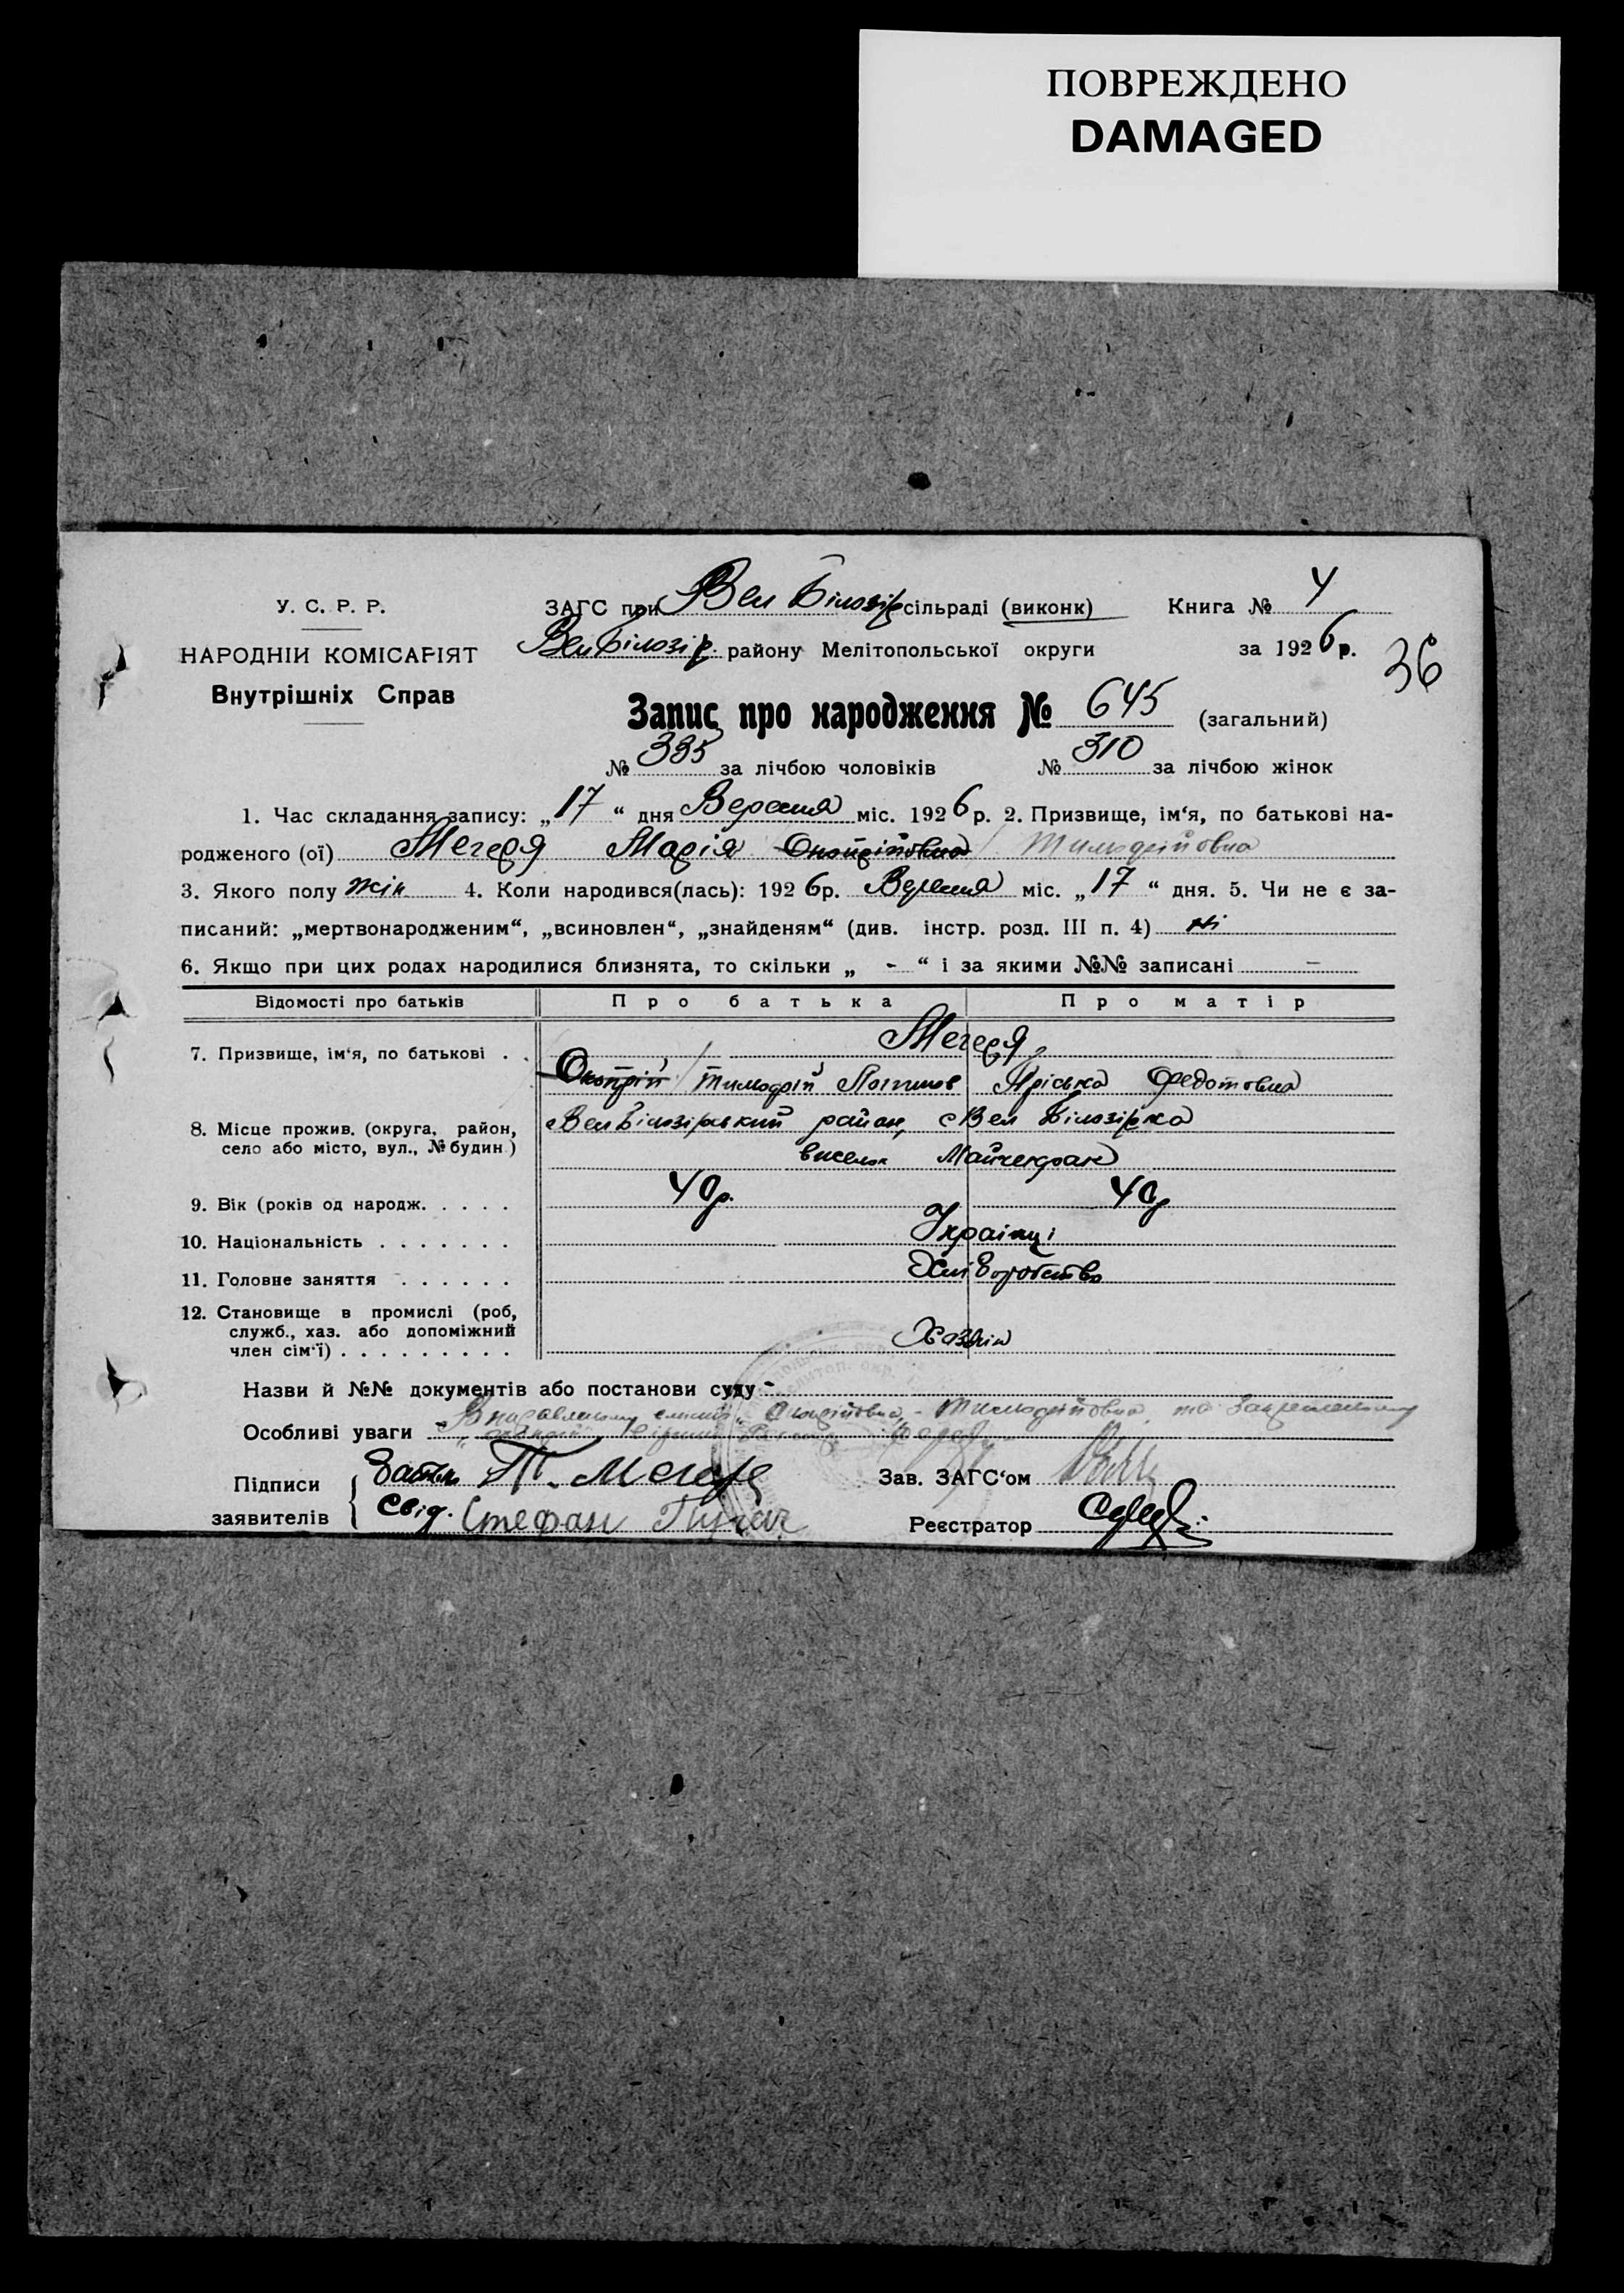 ПОВРЕЖДЕНО
DAMAGED
У. С. Р. Р.
НАРОДНІЙ КОМІСАРІЯТ
Внутрішніх Справ
ЗАГС при Вел Білозір сільраді (виконк) Книга № 4
Вел Білозір. району Мелітопольської округи за 1926 р.
36
Запис про народження № 645 (загальний)
№ 335 за лічбою чоловіків № 310 за лічбою жінок
1. Час складання запису: „17“ дня Вересня міс. 1926 р. 2. Призвище, ім‘я, по батькові на-
родженого (ої) Мегеря Марія Онопріївна Тимофіївна
3. Якого полу жін 4. Коли народився(лась): 1926р. Вересня міс. „17“ дня. 5. Чи не є за-
писаний: „мертвонародженим“, „всиновлен“, „знайденям“ (див. інстр. розд. III п. 4) ні
6. Якщо при цих родах народилися близнята, то скільки „ - “ і за якими №№ записані –
Відомості про батьків Про батька Про матір
7. Призвище, ім‘я, по батькові . . Мегеря
Онопрій Тимофій Пріська Федотовна
8. Місце прожив. (округа, район, село або місто, вул., № будин.) Вел Білозірський район, с Вел Білозірка
виселок
9. Вік (років од народж. . . . . 40р. 40р
10. Національність . . . . . . . Українці
11. Головне заняття . . . . . . Хліборобство
12. Становище в промислі (роб, служб., хаз. або допоміжний член сім‘ї) . . . . . . . . . Хазяїн
Назви й №№ документів або постанови суду -
Особливі уваги Онопріївна - Тимофіївна та
Підписи заявителів Батько Т. Мегеря
Свід. Стефан Пугач
Зав. ЗАГС‘ом
Реєстратор